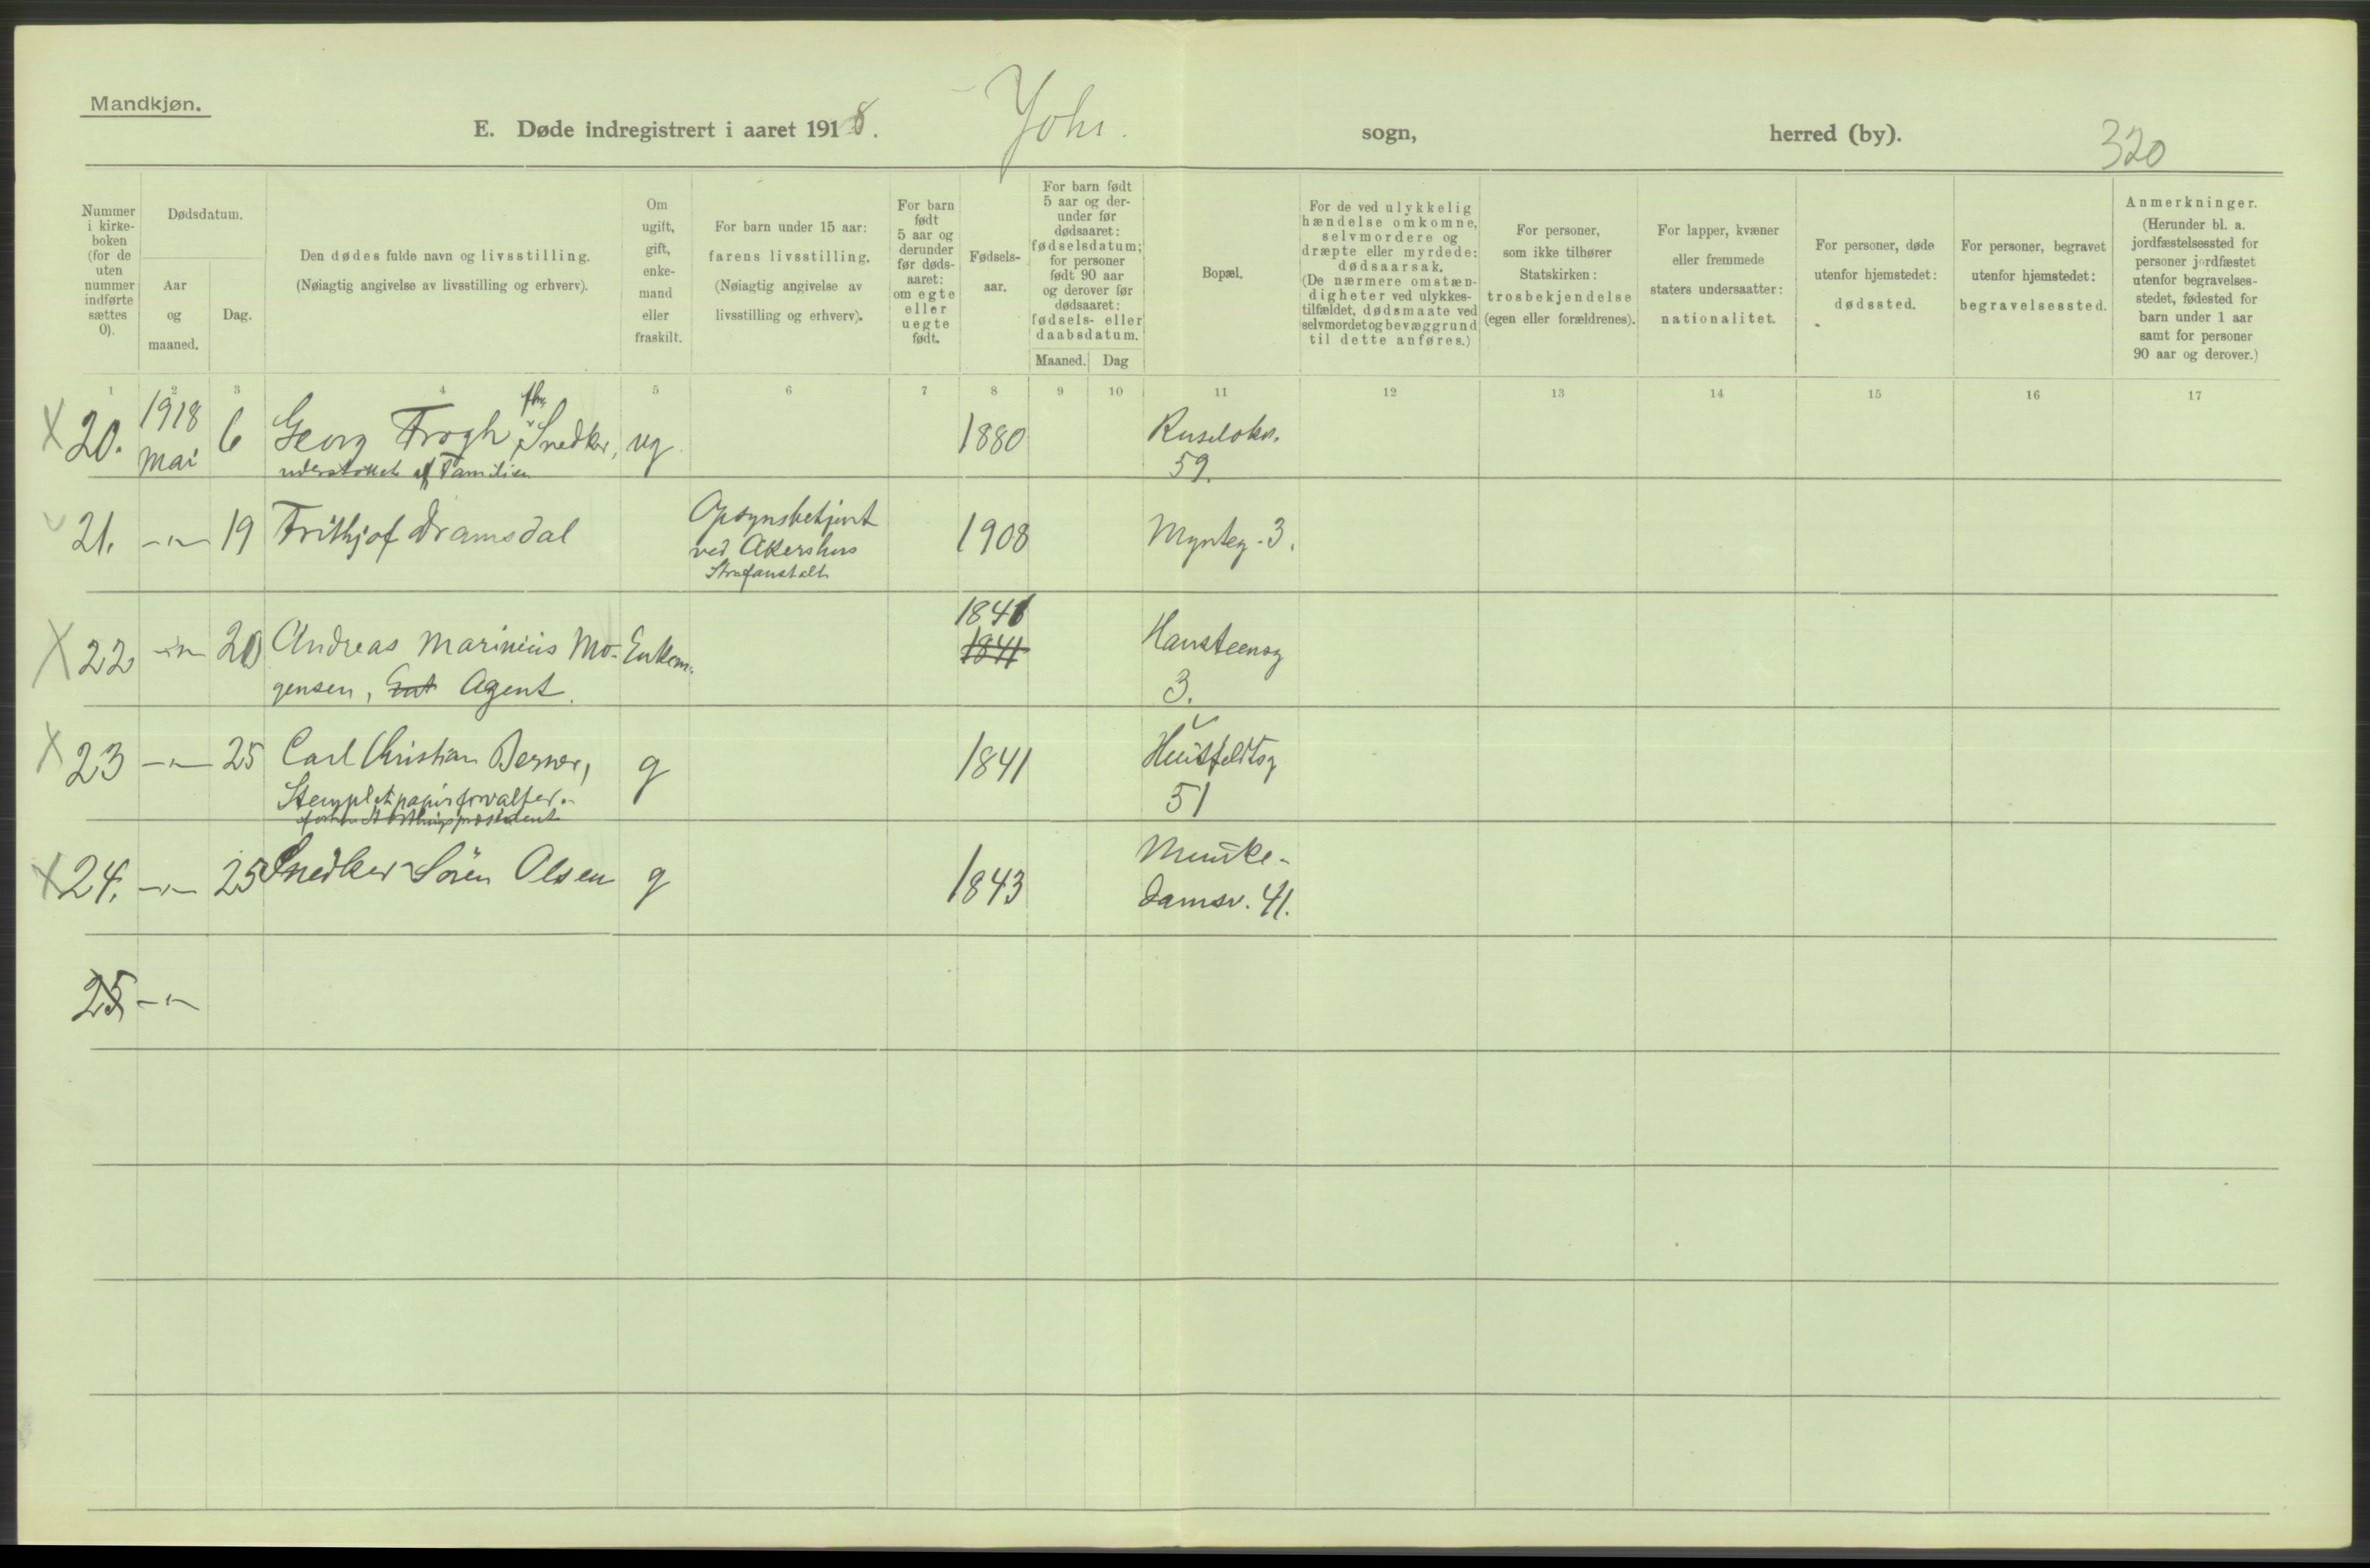 Mandkjøn.
E. Døde indregistrert i aaret 1918. Johs. sogn, herred (by). 320
Nummer i kirke-boken (for de uten nummer indførte sættes 0).
Dødsdatum.
Aar og maaned.
Dag.
Den dødes fulde navn og livsstilling.
(Nøiagtig angivelse av livsstilling og erhverv).
Om ugift, gift, enke-mand eller fraskilt.
For barn under 15 aar:
farens livsstilling.
(Nøiagtig angivelse av livsstilling og erhverv).
For barn født 5 aar og derunder før døds-aaret: om egte eller uegte født.
Fødsels-aar.
For barn født 5 aar og der-under før dødsaaret: fødselsdatum; for personer født 90 aar og derover før dødsaaret: fødsels- eller daabsdatum.
Maaned. Dag
Bopæl.
For de ved ulykkelig hændelse omkomne, selvmordere og dræpte eller myrdede: dødsaarsak. (De nærmere omstæn-digheter ved ulykkes-tilfældet, dødsmaate ved selvmordet og bevæggrund til dette anføres.)
For personer, som ikke tilhører Statskirken: trosbekjendelse (egen eller forældrenes).
For lapper, kvæner eller fremmede staters undersaatter: nationalitet.
For personer, døde utenfor hjemstedet: dødssted.
For personer, begravet utenfor hjemstedet: begravelsessted.
Anmerkninger.
(Herunder bl. a. jordfæstelsessted for personer jordfæstet utenfor begravelses-stedet, fødested for barn under 1 aar samt for personer 90 aar og derover.)
1 2 3 4 5 6 7 8 9 10 11 12 13 14 15 16 17
X 20. 1918 Mai 6 Georg Frogh, fhv. Snedker, ug. 1880 Ruselokv. 59.
understøttet af Familien
21. -"- 19 Frithjof Dramsdal Opsynsbetjent ved Akershus Strafanstalt 1908 Myntg. 3.
X 22 -"- 20 Andreas Marinius Mo- Enkem. 1846 1841 Hansteensg
gensen, Ent Agent. 3.
X 23 -"- 25 Carl Christian Berner, g 1841 Huitfeldtsg
Stemplet papirforvalter. 51
forhen Storthingspræsident
X 24. -"- 25 Snedker Sören Olsen g 1843 Munke-
damsv. 41.
25. -"-